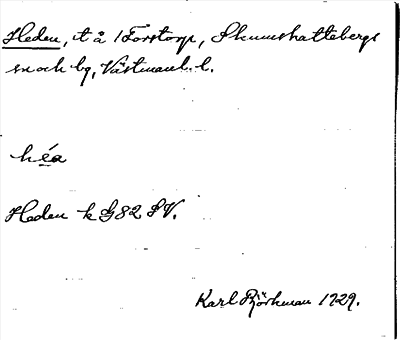 Heden, t å 1 Forstorp, Skinnskattebergs
sn och bg, Västmanl. l.
héa
Heden k G82 SV.
Karl Björkman 1929.